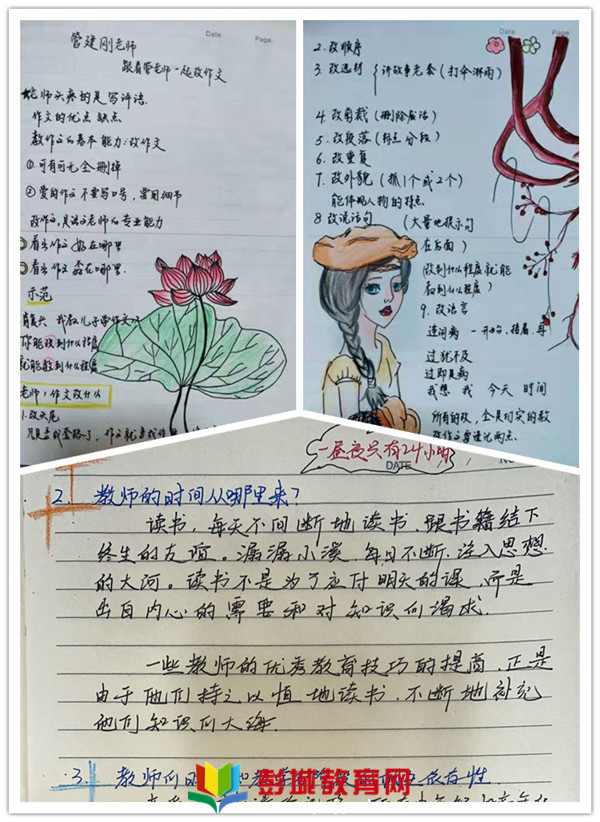 Date.
管建刚老师
跟着管老师一起改作文
老师头疼的是写评语.
作文的优点 缺点.
教作文的基本能力:改作文
①可有可无全删掉
②爱的作文不要写口号，要用细节
改作文,是语文老师的专业能力
看出作文好在哪里
看出作文 在哪里.
示范
你能改到什么程度
就能教到什么程度
老师：作文改什么
1.改头尾
Date.
Page.
2.改顺序
3.改选材 {讲故事老套(打伞 淋雨)
4.改剪裁(删除废话)
5.改段落(特点 分段)
6.改重复
7.改外貌(抓1个或2个)
能体现人物的特点
8 改说话句 (大量地提示句
在前面)
(改到什么程度就能
教到什么程度)
9.改语言
连词病 一开始、接着、再
过犹不及
过即是病
我想 我 今天 时间
所有的改,全是切实的教
改作文要谨记两点.
一昼夜只有24小时
DATE
2. 教师的时间从哪里来?
读书,每天不间断地读书,跟书籍结下
终生的友谊。潺潺小溪,每日不断,注入思想
的大河。读书不是为了应付明天的课,而是
出自内心的需要和对知识的渴求.
一些教师的优秀教育技巧的提高,正是
由于他们持之以恒地读书,不断地补充
他们知识的大海.
3. 教师的时 和教学 依存性.
彭城教育网